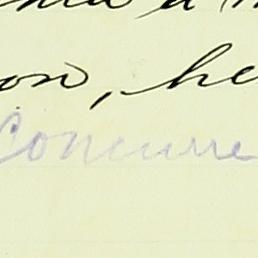 on, he
Concurre